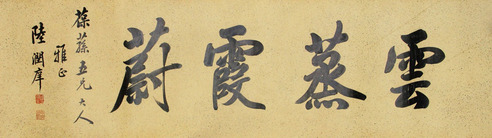 雲蒸霞蔚
葆蓀五兄大人
雅正
陸潤庠